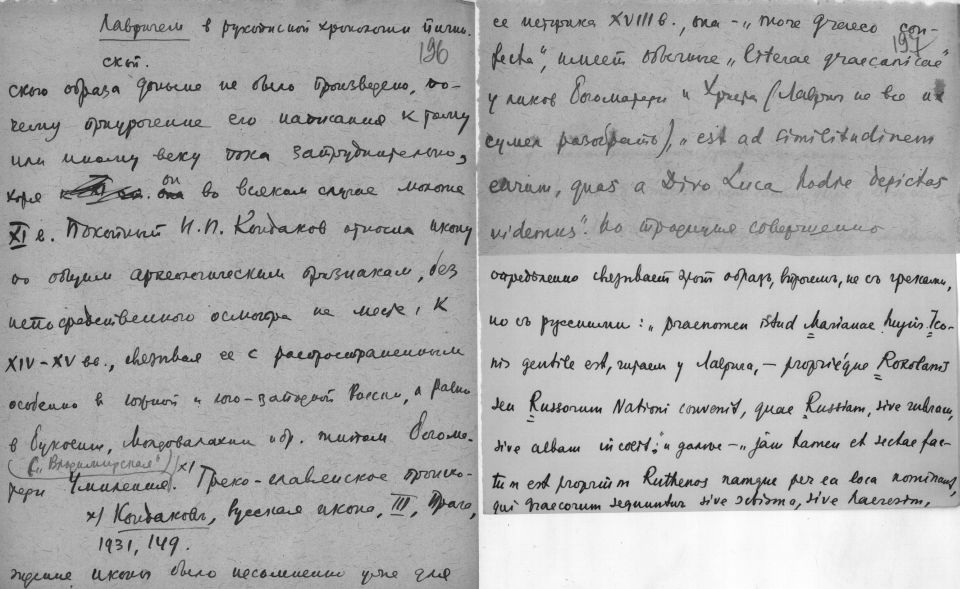 Лавричем в рукописной хронологии
196
ского образа доныне не было произведено, по-
чему приурочение его написания к тому
или иному веку пока затруднительно,
хотя он во всяком случае моложе
XI в. Покойный Н. П. Кондаков относил икону
по общим археологическим признакам, без
непосредственного осмотра на месте, к
XIV–XV вв., связывая ее с распространенным
особенно в южной и юго-западной России, а равно
в Буковине, Молдовалахии и др. типом Богома-
("Владимирская")
тери Умиления. x) Греко-славянское происхо-
x) Кондаковъ, Русская икона, III, Прага,
1931, 149.
ждение иконы было несомненно уже для
ее историка XVIII в., она – "more graeco con-
197
fecta", имеет обычные "literae graecanicae"
у ликов Богоматери и Христа (Лаврич не все
сумел разобрать), "est ad similitudinem
earum, quas a Divo Luca hodie depictas
videmus". Но традиция совершенно
определенно связывает этот образъ, впрочемъ, не съ греками,
но съ русскими: "praenomen istud Marianae hujus Ico-
nis gentile est, читаем у Лаврича, – propriéque Roxolanis
seu Russorum Nationi convenit, quae Russiam, sive rubram,
sive albam incolit;" и далее – "jam tamen et sectae fac-
tum est proprium Ruthenos namque per ea loca nominant,
qui graecorum sequuntur sive schisma, sive haeresim,